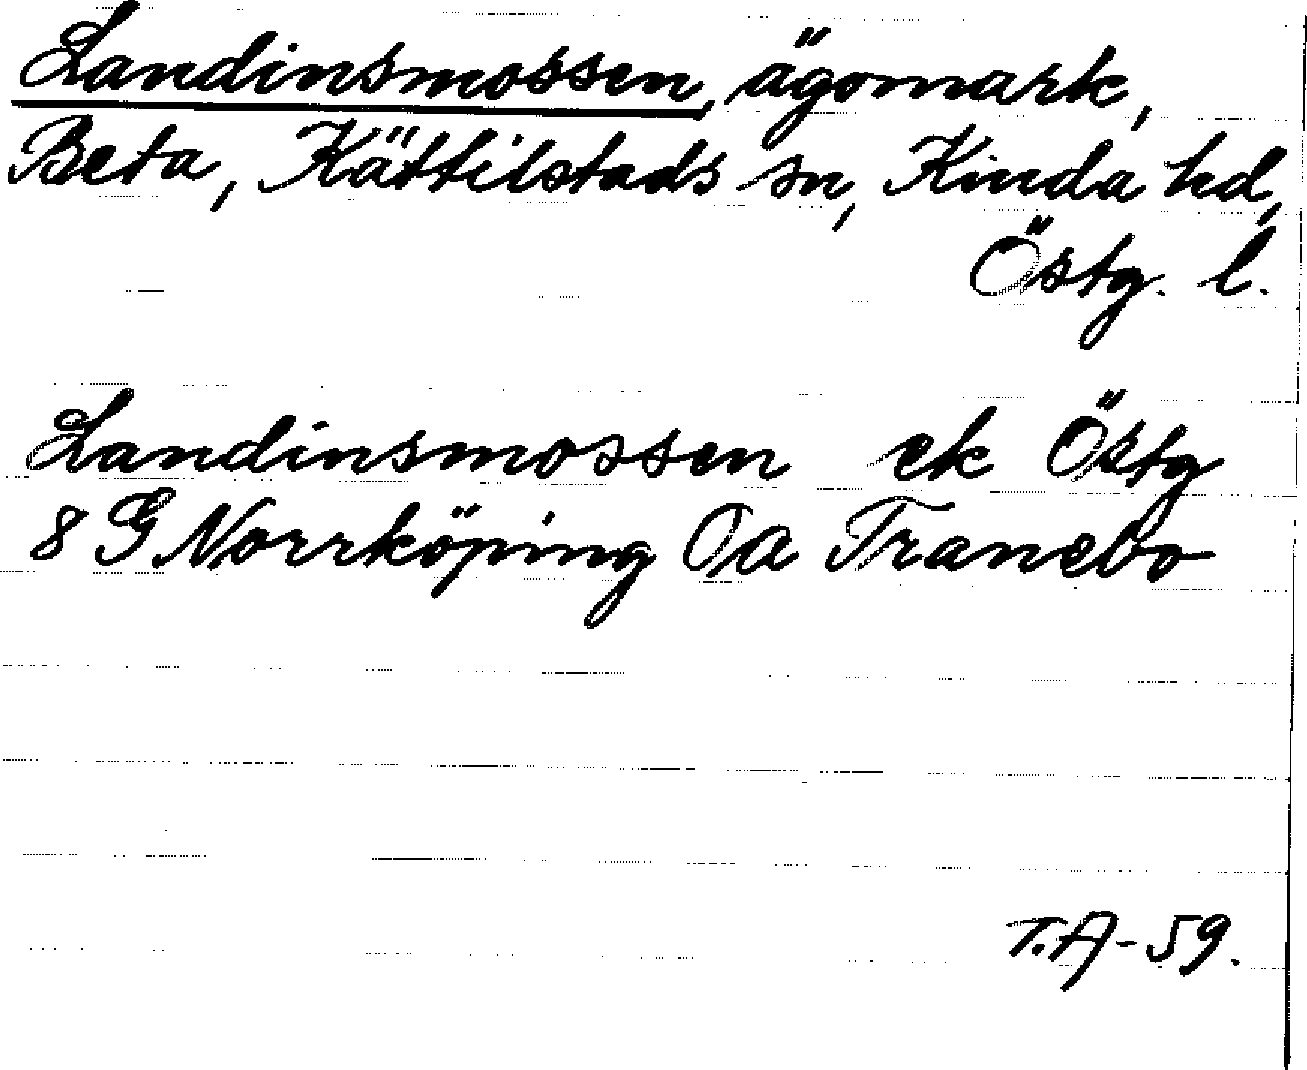 Landinsmossen, ägomark,
Beta, Kättilstads sn, Kinda hd,
Östg. l.
Landinsmossen ek Östg
8 G Norrköping Oa Tranebo
T.A-59.